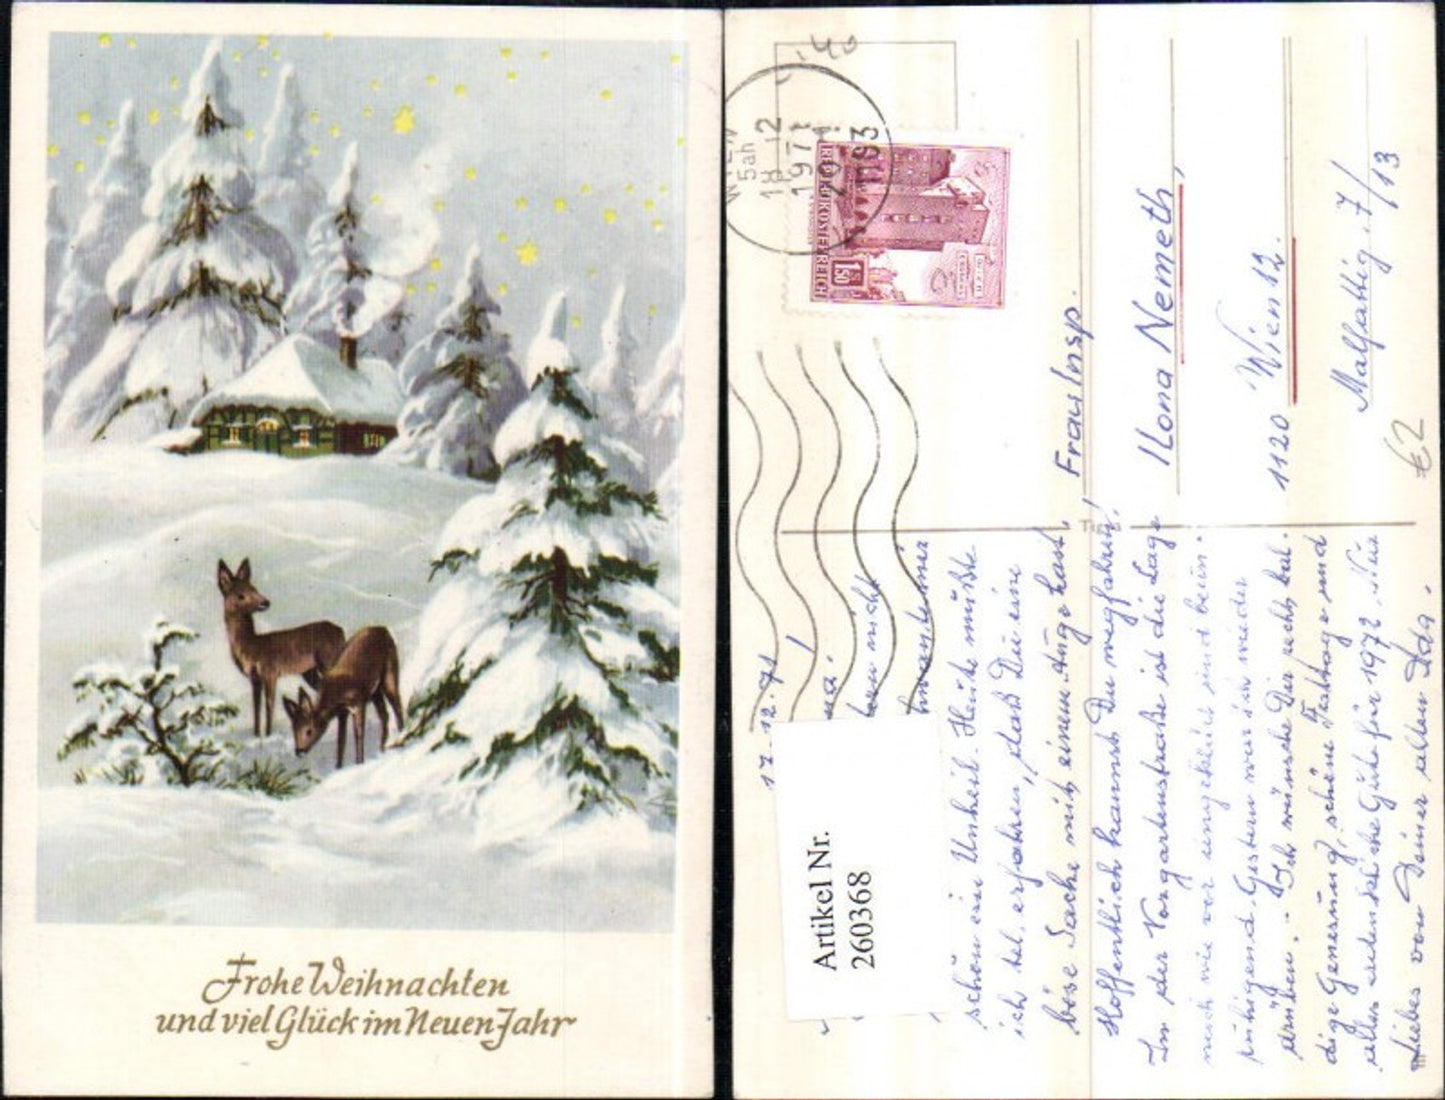 Frohe Weihnachten
und viel Glück im Neuen Jahr
WIEN
5ah
18 12
1971
1103
REPUBLIK ÖSTERREICH
S 1.50
Frau Insp.
Ilona Nemeth,
1120 Wien 12.
Malfattig. 7/13
€2
17. 12. 71
Artikel Nr.
260368
nicht
schon ein Unheil. Heute mußte
ich tel. erfahren, daß Du eine
böse Sache mit einem Auge hast.
Hoffentlich kannst Du wegfahren!
In der Vorgartenstraße ist die Lage
nach wie vor ungeklärt und beun-
ruhigend. Gestern war ich wieder
drüben. - Ich wünsche Dir recht bal-
dige Genesung, schöne Festtage und
alles erdenkliche Gute für 1972.
Liebes von Deiner alten Ida.